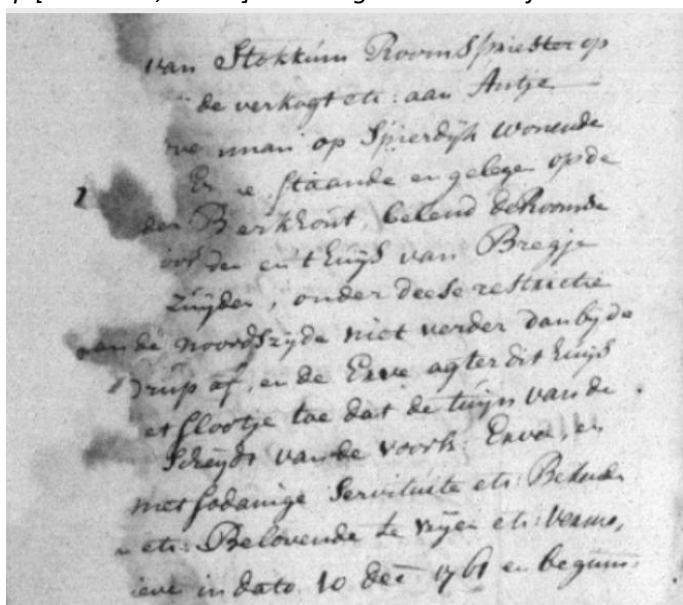 van Stokkum Rooms Priester op
de verkogt etc: aan Antje
we man op Spierdijk wonende
En e staande en gelege op de
den Berkhout, belend de Roomse
oorden en 't Huijs van Bregje
Zuijden, onder deese restrictie
aan de noordzyde niet verder dan by de
Drup af, en de Erve agter dit huijs
et slootje toe dat de tuijn van de
Scheijdt van de voorsz: Erve, en
met sodanige Servituite etc:
etc: Belovende te vrijen etc:
ieve in dato 10 dec 1761 en